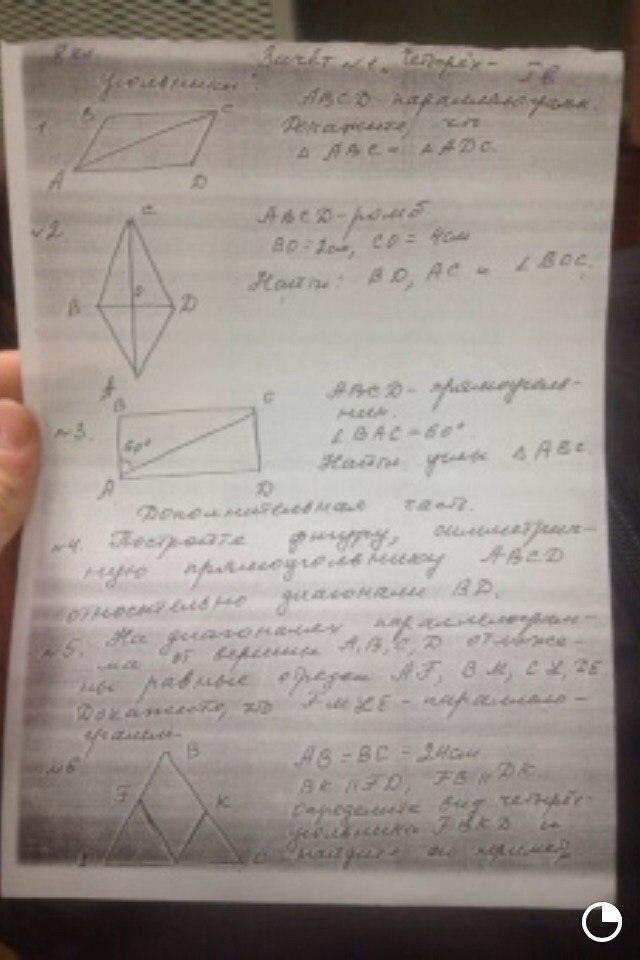 8 кл Зачёт №1. Четырёх-
угольники".
1. ABCD - параллелограмм.
Докажите, что
△ ABC = △ ADC.
B C A D
№2 ABCD - ромб
BO = 2см, CO = 4см
Найти: BD, AC и ∠ BOC.
C B O D A
№3. ABCD - прямоуголь-
ник.
∠ BAC = 60°
Найти углы △ ABC.
B C 60° A D
Дополнительная часть.
№4. Постройте фигуру, симметрич-
ную прямоугольнику ABCD
относительно диагонали BD.
№5. На диагоналях параллелограм-
ма от вершин A, B, C, D отложе-
ны равные отрезки AF, BM, CL, DE
Докажите, что FMLE - параллело-
грамм.
№6 AB = BC = 24см
BK || FD, FB || DK.
Определите вид четырёх-
угольника FBKD и
найдите его перимет.
B F K